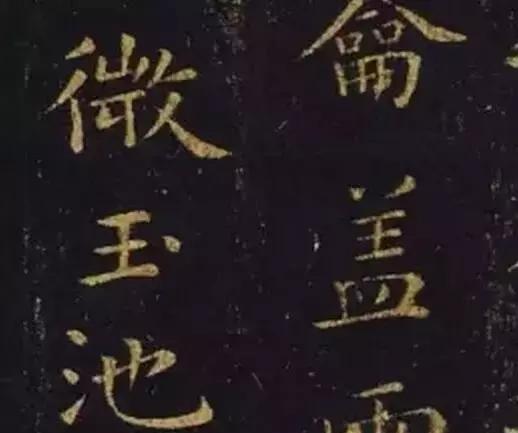 龠盖
微玉池